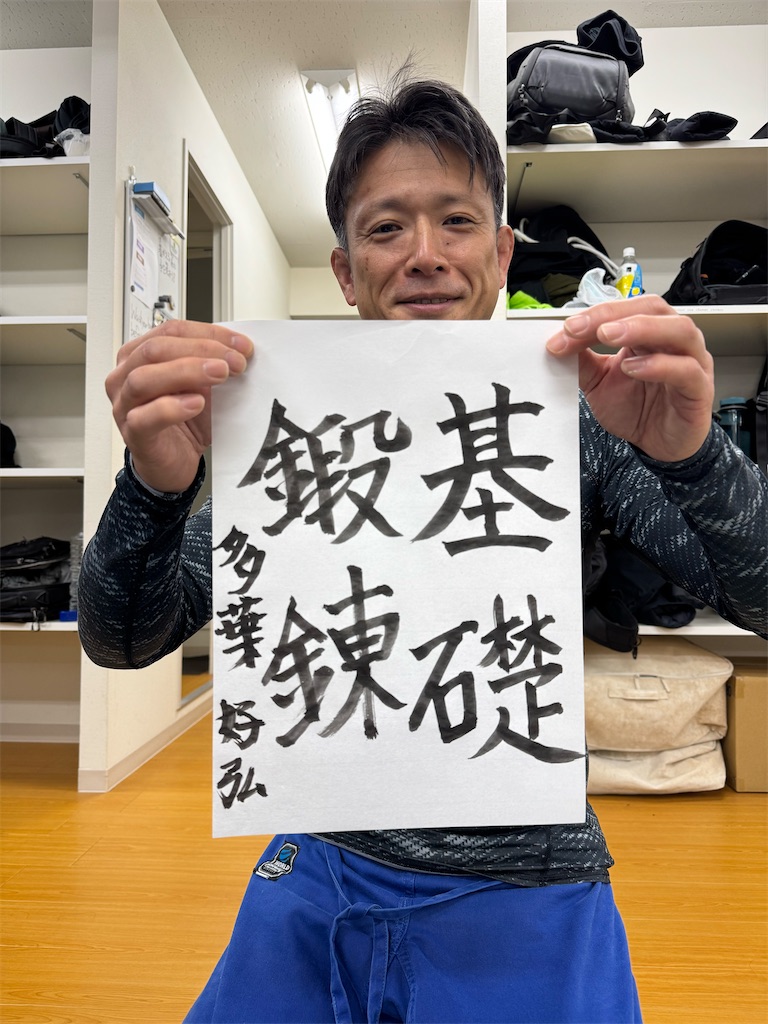 基礎
鍛錬
多葉 好弘